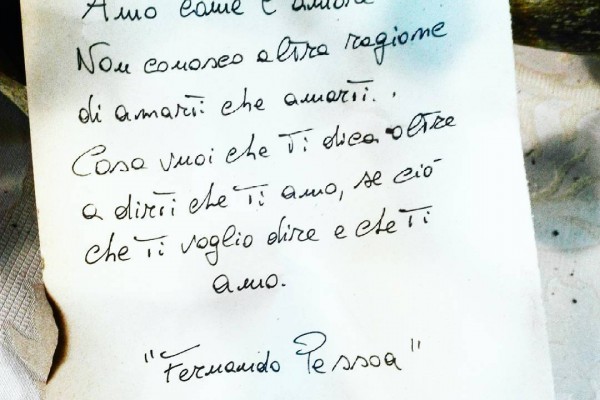 Amo come è amore
Non conosco altra ragione
di amarti che amarti..
Cosa vuoi che Ti dica oltre
a dirti che Ti amo, se ciò
che Ti voglio dire e che Ti
amo.
"Fernando Pessoa"